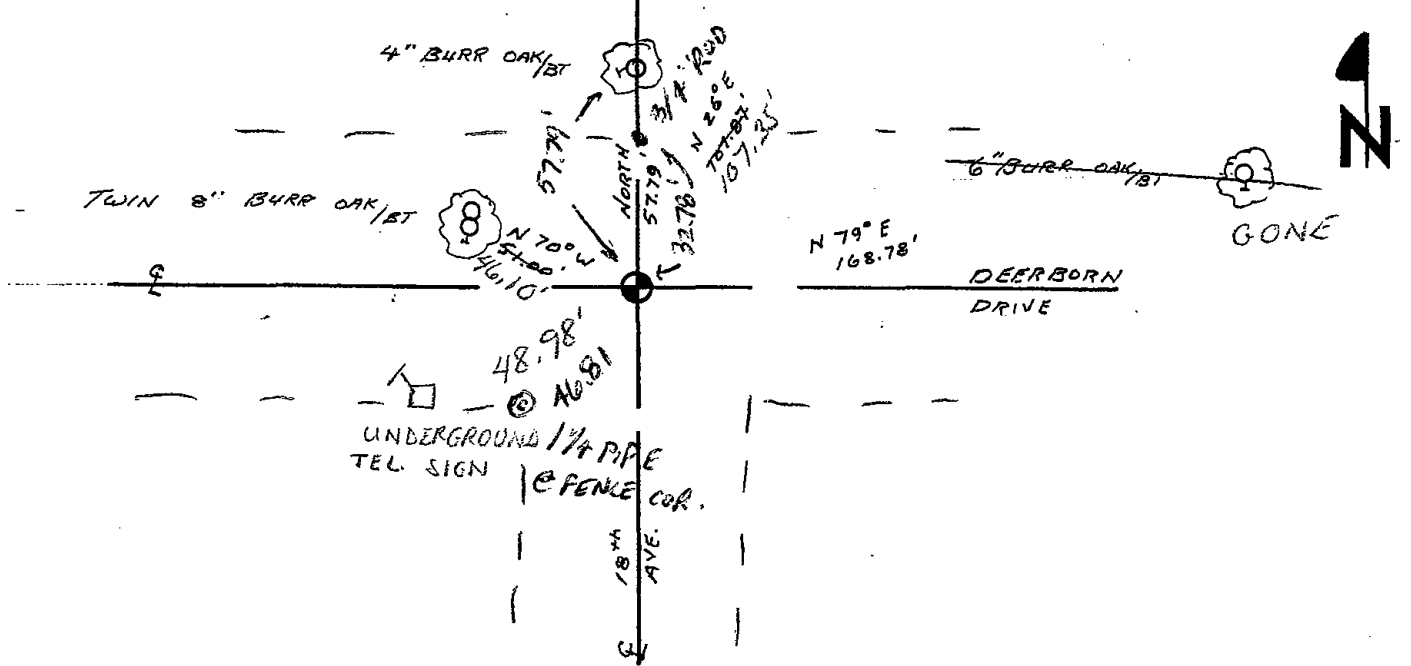 4" BURR OAK/BT
3/4" ROD
N 26° E
107.87'
107.35'
57.79'
NORTH
57.79'
32.78'
6" BURR OAK/BT
GONE
N
TWIN 8" BURR OAK/BT
N 70° W
51.00'
46.10'
N 79° E
168.78'
DEERBORN
DRIVE
℄
48.98'
46.81
UNDERGROUND
TEL. SIGN
1 1/4 PIPE
@ FENCE COR.
18th
AVE.
℄